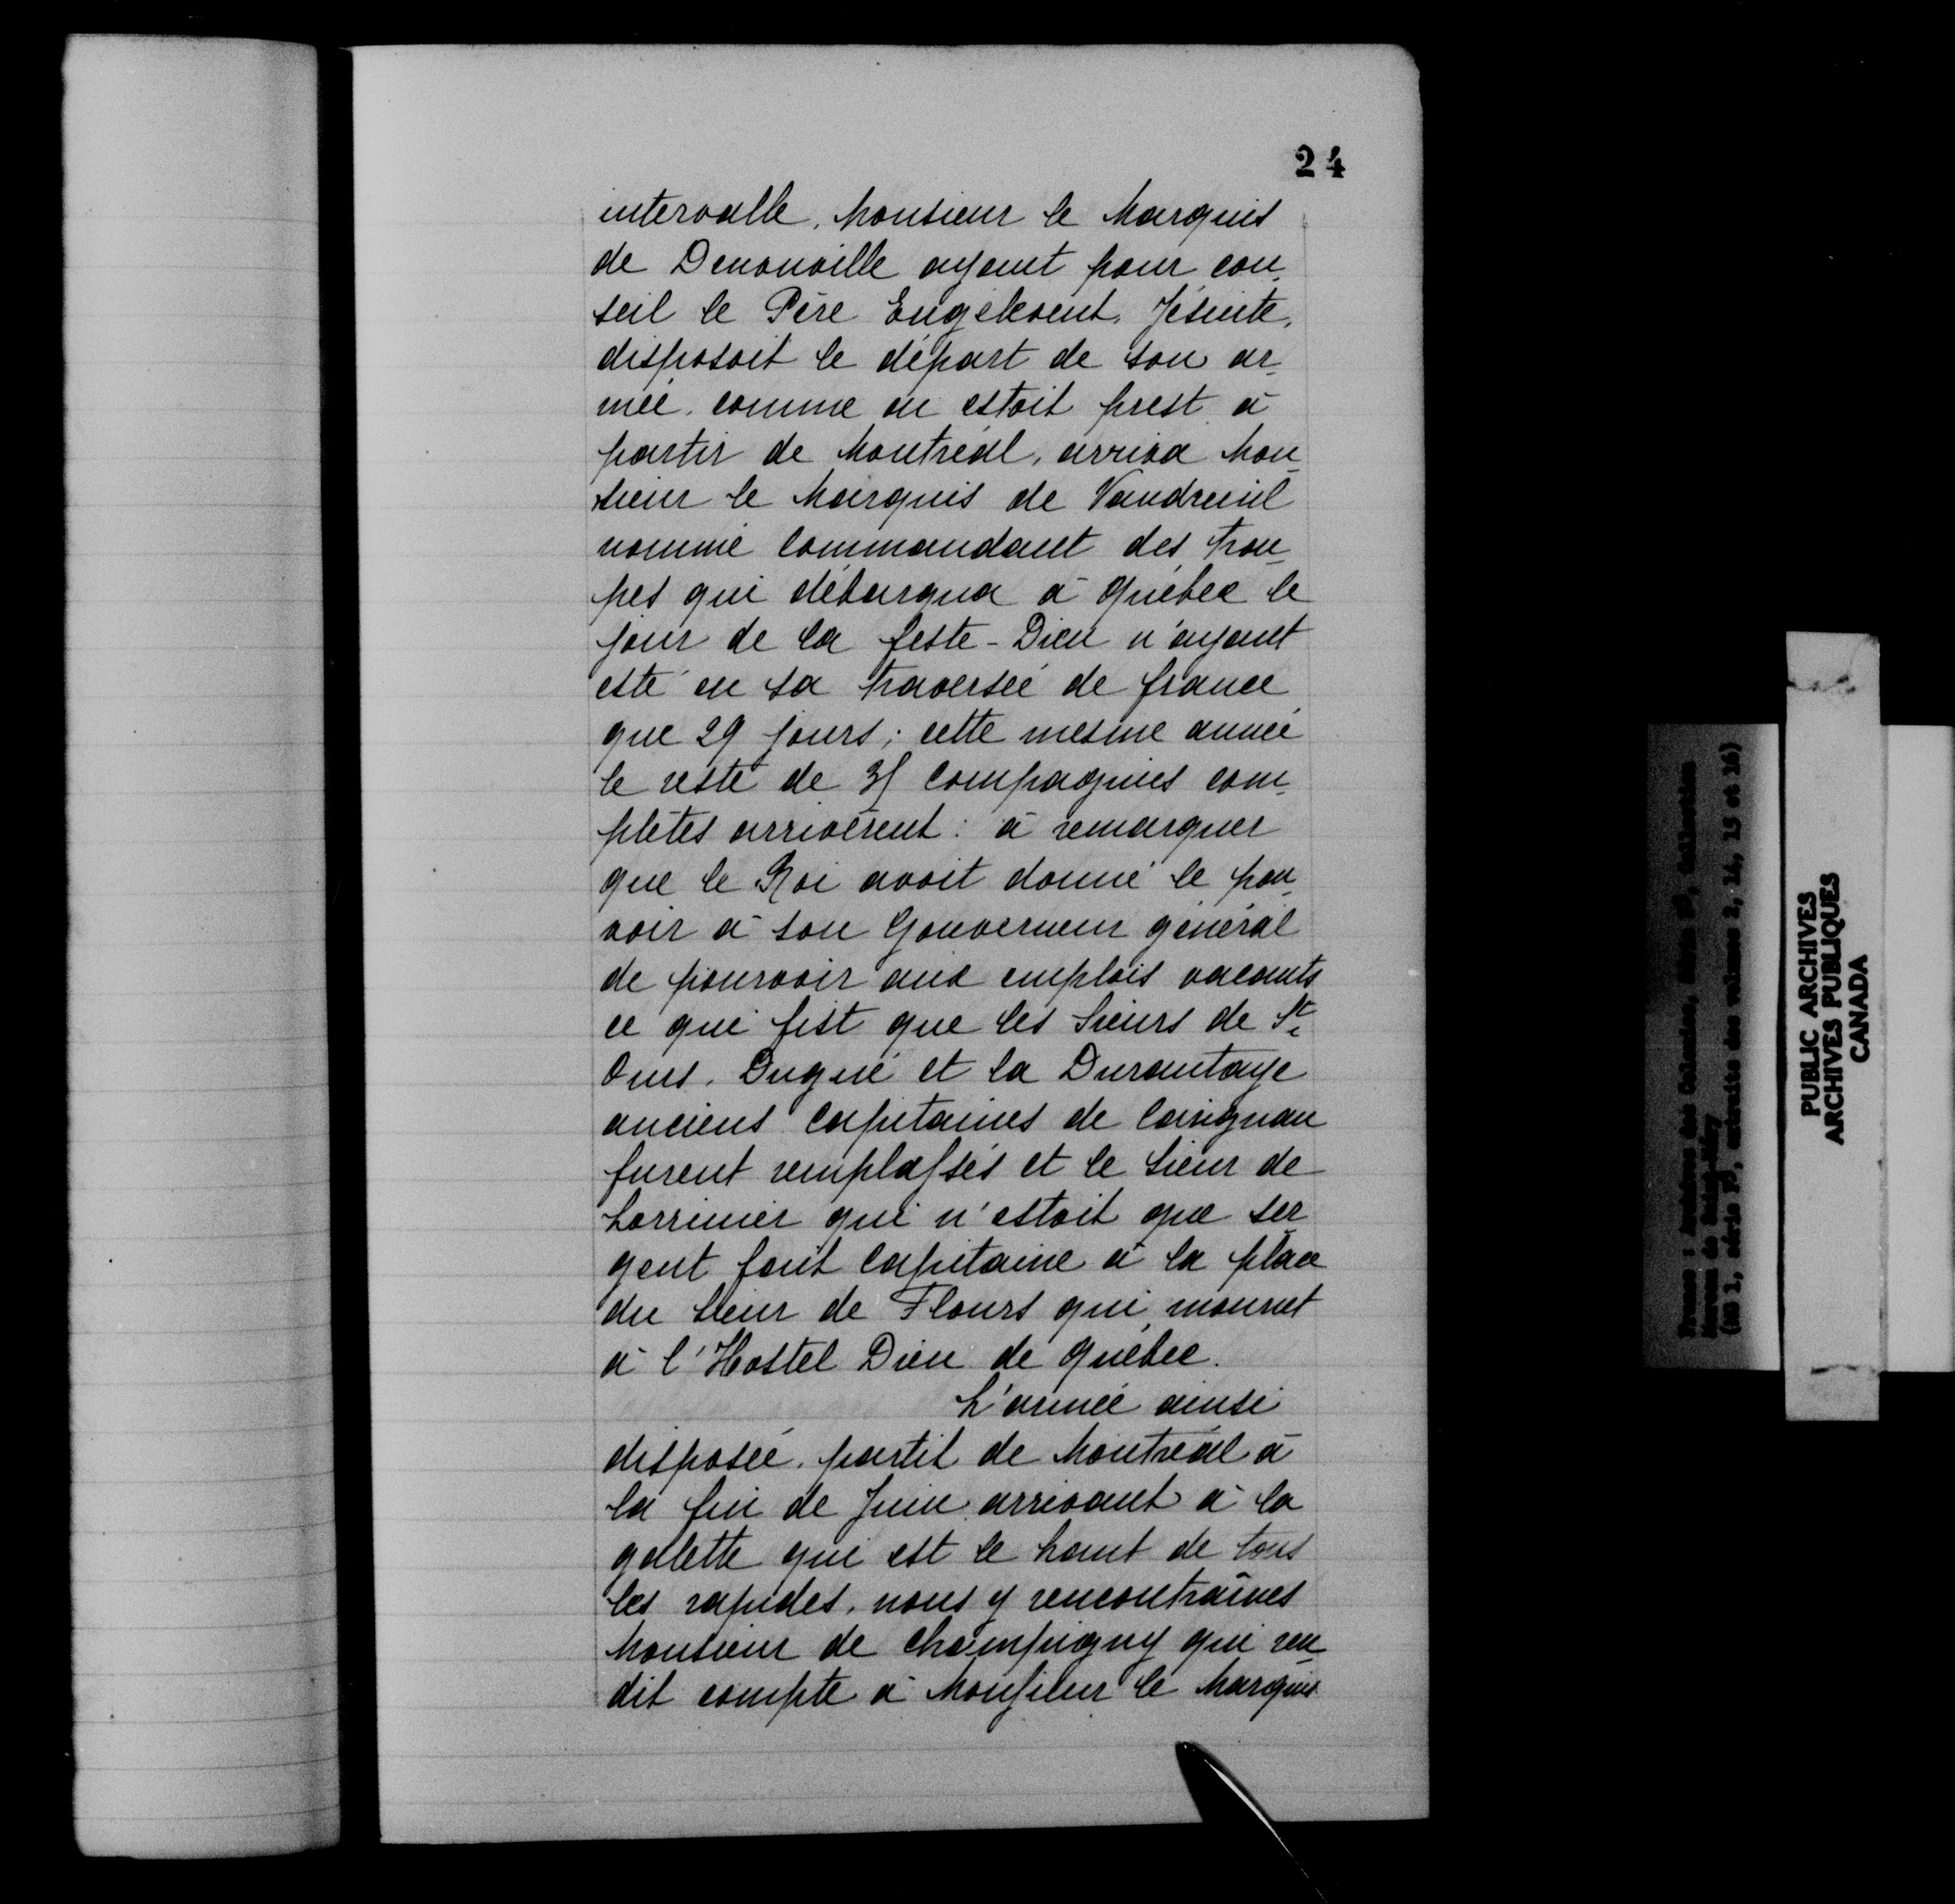 24
intervalle, Monsieur le Marquis
de Denonville ayant pour con-
seil le Père Engelvent, Jésuite,
disposoit le départ de son ar-
mée, comme on estoit prest à
partir de Montréal, arriva Mon-
sieur le Marquis de Vaudreuil
nommé Commandant des trou-
pes qui débarqua à Québec le
jour de la feste-Dieu n'ayant
esté en sa traversée de france
que 29 jours; cette mesme année
le reste de compagnies com-
plètes arrivèrent: à remarquer
que le Roi avoit donné le pou-
voir à son Gouverneur général
de pourvoir aux emplois vacants
ce qui fist que les Sieurs de St
Ours, Dugué et la Durantaye
anciens Capitaines de Carignan
furent remplassés et le Sieur de
Lorrimier qui n'estoit que ser-
gent fait Capitaine à la place
du Sieur de Flours qui mourut
à l'Hostel Dieu de Québec.
L'armée ainsi
disposée, partit de Montréal à
la fin de Juin arrivant à la
galette qui est le haut de tous
les rapides, nous y rencontrâmes
Monsieur de Champigny qui ren-
dit compte à Monsieur le Marquis
PUBLIC ARCHIVES
ARCHIVES PUBLIQUES
CANADA
France : Archives des Colonies, Série F3, Collection
Moreau de Saint-Méry
(MG 1, série F3, extraits des volumes 2, 14, 15 et 16)